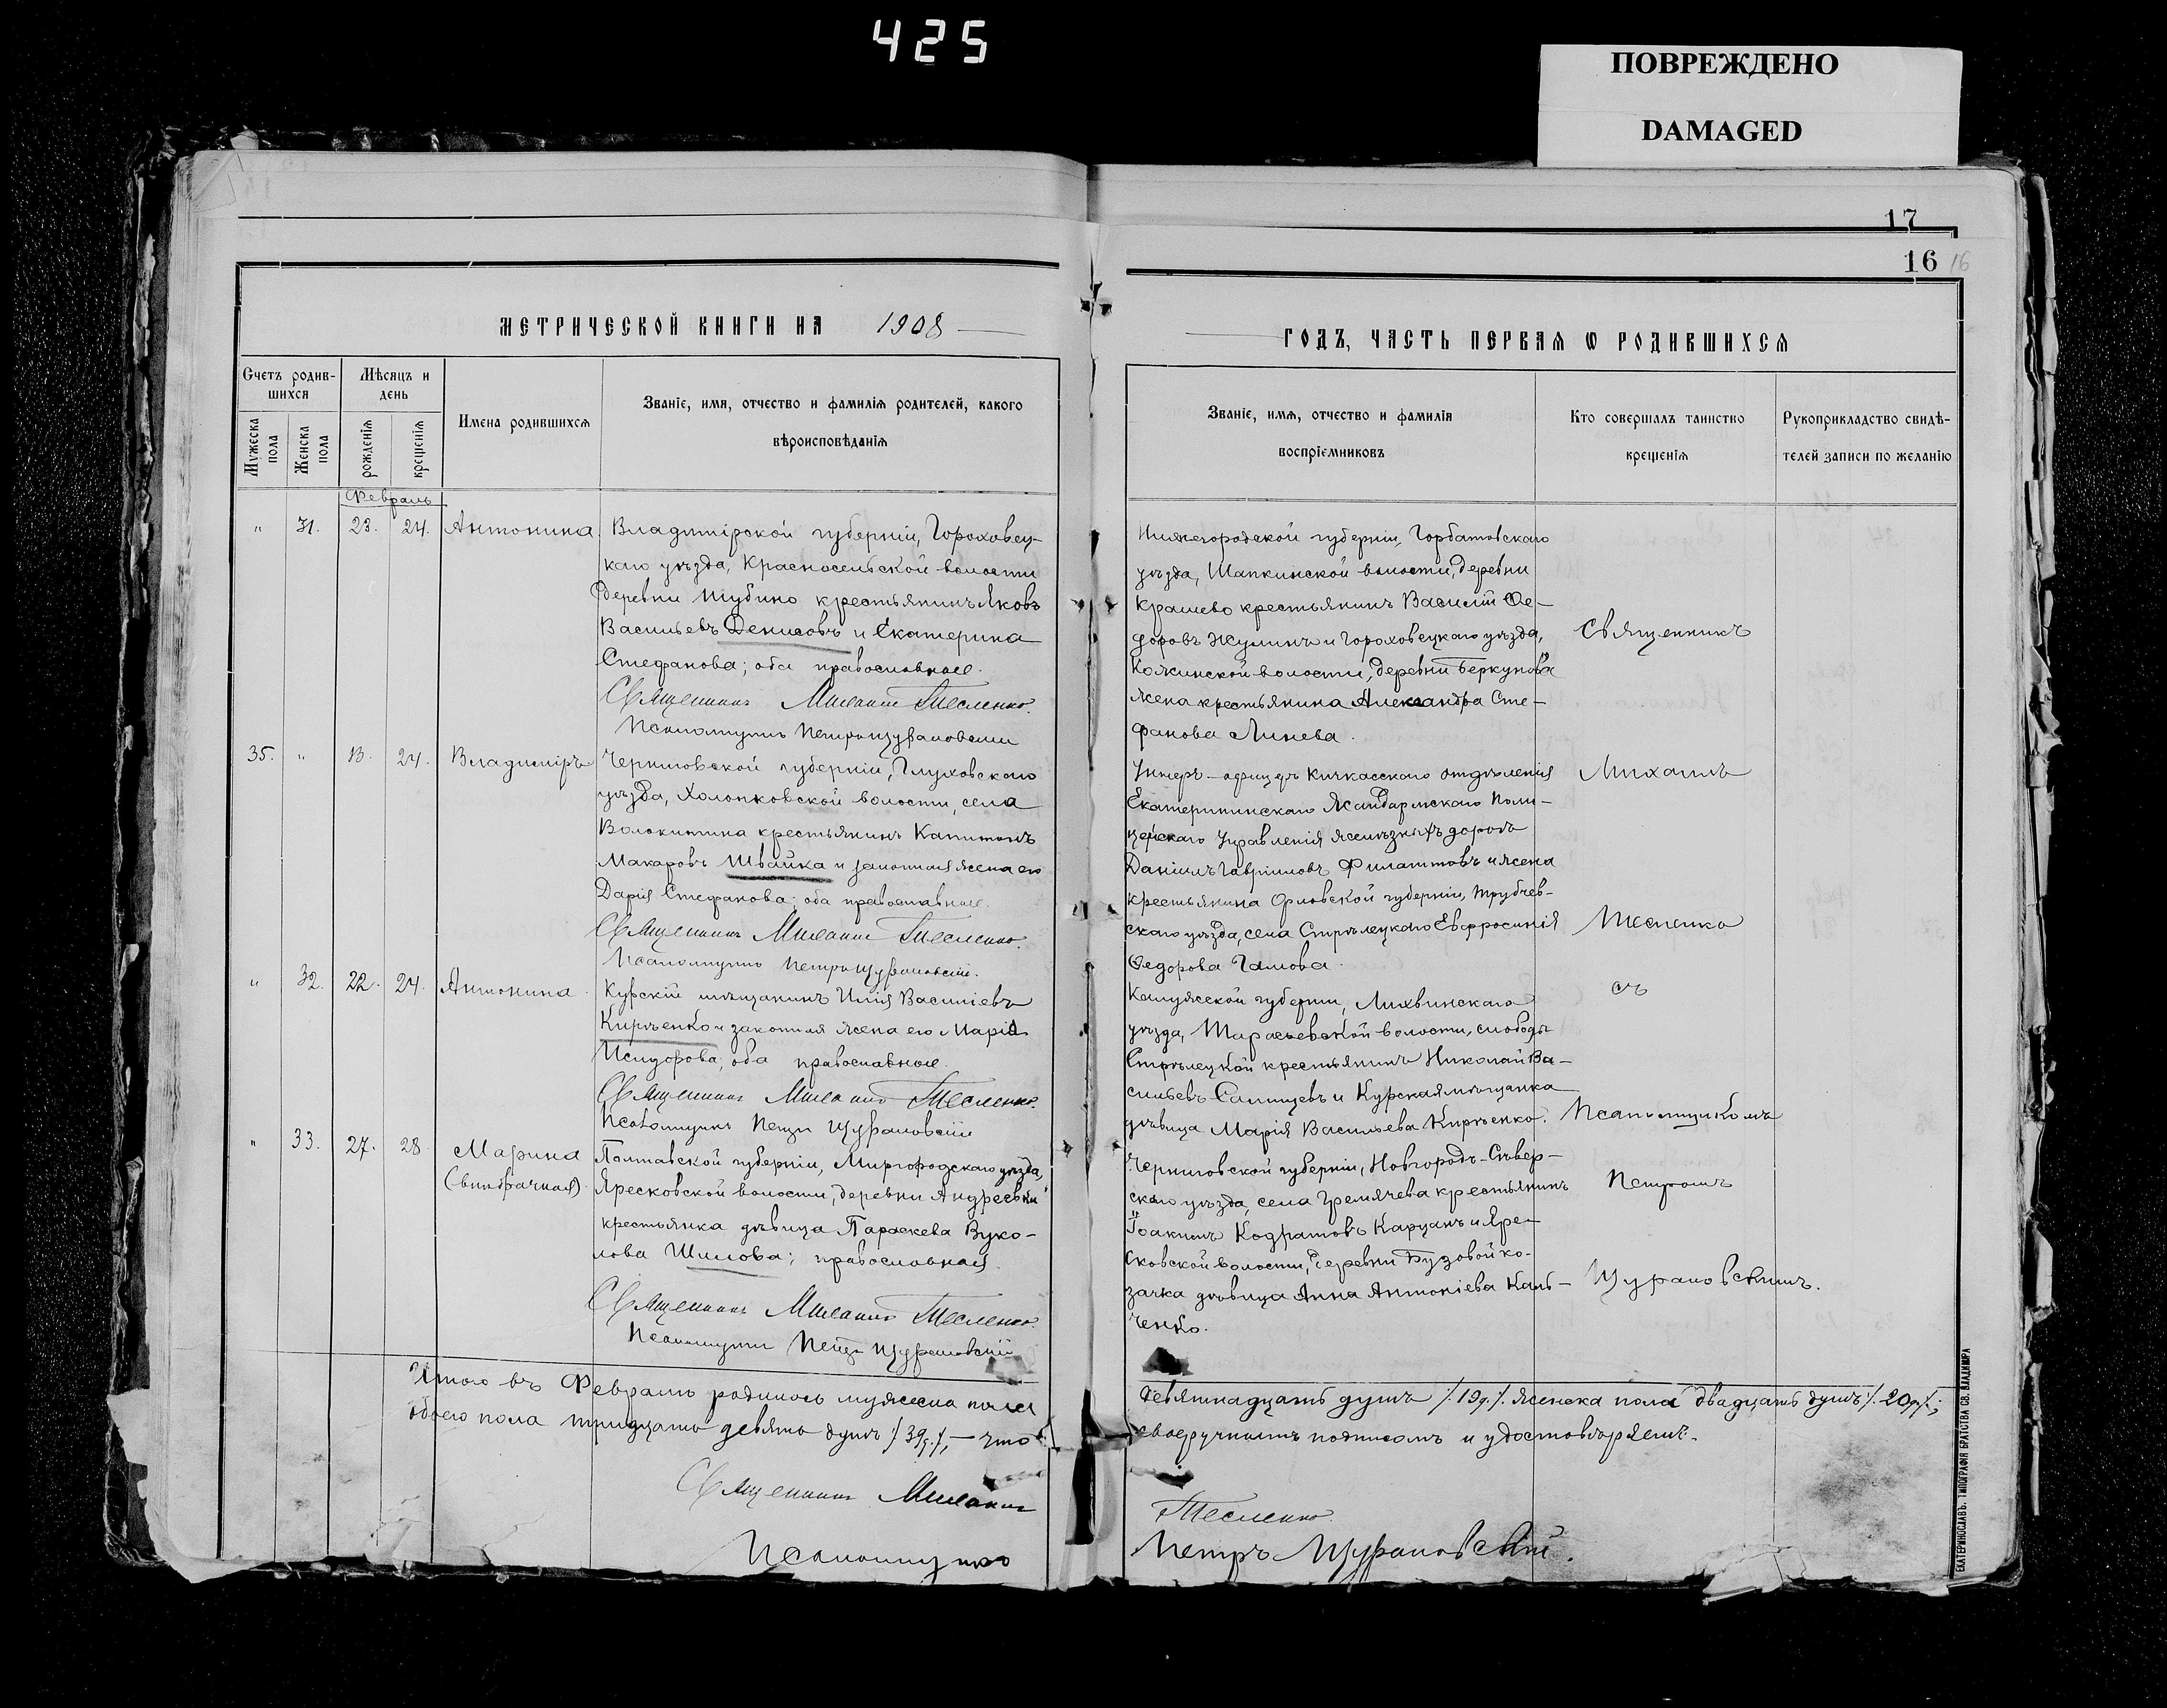 425
ПОВРЕЖДЕНО
DAMAGED
17
16 16
МЕТРИЧЕСКОЙ КНИГИ НА 1908
Счетъ родив-
шихся
Мѣсяцъ и
день
Имена родившихся
Званіе, имя, отчество и фамилія родителей, какого
вѣроисповѣданія
Мужеска
пола
Женска
пола
рожденія
крещенія
Февраль
" 31. 23. 24. Антонина. Владимірской губерніи, Гороховец-
каго уѣзда, Красносельской волости
деревни крестьянинъ Яковъ
Васильевъ Денисовъ и Екатерина
Стефанова; оба православные.
Священникъ Михаилъ Тесленко.
Псаломщикъ Петръ Щурановскій
35. " 13. 24. Владиміръ Черниговской губерніи, Глуховскаго
уѣзда, Холопковской волости, села
Волокитина крестьянинъ Капитонъ
Макаровъ Швайка и законная жена его
Дарія Стефанова; оба православные.
Священникъ Михаилъ Тесленко.
Псаломщикъ Петръ Щурановскій.
" 32. 22. 24. Антонина. Курскій мѣщанинъ Илія Василіевъ
Кирѣенко и законная жена его Марія
Исидорова; оба православные.
Священникъ Михаилъ Тесленко.
Псаломщикъ Петръ Щурановскій
" 33. 27. 28. Марина Полтавской губерніи, Миргородскаго уѣзда,
(внибрачная). Яресковской волости, деревни Андреевки
крестьянка дѣвица Параскева Вуко-
лова Шилова; православная.
Священникъ Михаилъ Тесленко.
Псаломщикъ Петръ Щурановскій
Итого въ Февралѣ родилось мужеска пола
обоего пола тридцать девять душъ /39д./, – что
Священникъ Михаилъ
Псаломщикъ
ГОДЪ, ЧАСТЬ ПЕРВАЯ Ѡ РОДИВШИХСЯ
Званіе, имя, отчество и фамилія
воспріемниковъ
Кто совершалъ таинство
крещенія
Рукоприкладство свидѣ-
телей записи по желанію
Нижегородской губерніи, Горбатовскаго
уѣзда, Шапкинской волости, деревни
Крашево крестьянинъ Василій Ѳе-
доровъ Жулинъ и Гороховецкаго уѣзда,
Кожинской волости, деревни Беркунова
жена крестьянина Александра Сте-
фанова Линева.
Унтеръ-офицеръ Кичкасскаго отдѣленія
Екатерининскаго Жандармскаго Поли-
цейскаго Управленія желѣзныхъ дорогъ
Даніилъ Гавріиловъ Филатовъ и жена
крестьянина Орловской губерніи, Трубчев-
скаго уѣзда, села Стрѣлецкаго Евфросинія
Ѳедорова Гамова.
Калужской губерніи, Лихвинскаго
уѣзда, волости, слободы
Стрѣлецкой крестьянинъ Николай Ва-
сильевъ и Курская мѣщанка
дѣвица Марія Васильева Кирѣенко.
Черниговской губерніи, Новгородъ-Сѣвер-
скаго уѣзда, села Гремячева крестьянинъ
Іоакимъ Кодратовъ Карцанъ и Яре-
сковской волости, деревни Бузовой ко-
зачка дѣвица Анна Антоніева Каль-
ченко.
Священникъ
Михаилъ
Тесленко
съ
Псаломщикомъ
Петромъ
Щурановскимъ.
девятнадцать душъ /.19д./. женска пола двадцать душъ /.20д./.;
своеручнымъ подписомъ и удостовѣряемъ.
Тесленко.
Петръ Щурановскій.
ЕКАТЕРИНОСЛАВЪ. ТИПОГРАФІЯ БРАТСТВА СВ. ВЛАДИМІРА